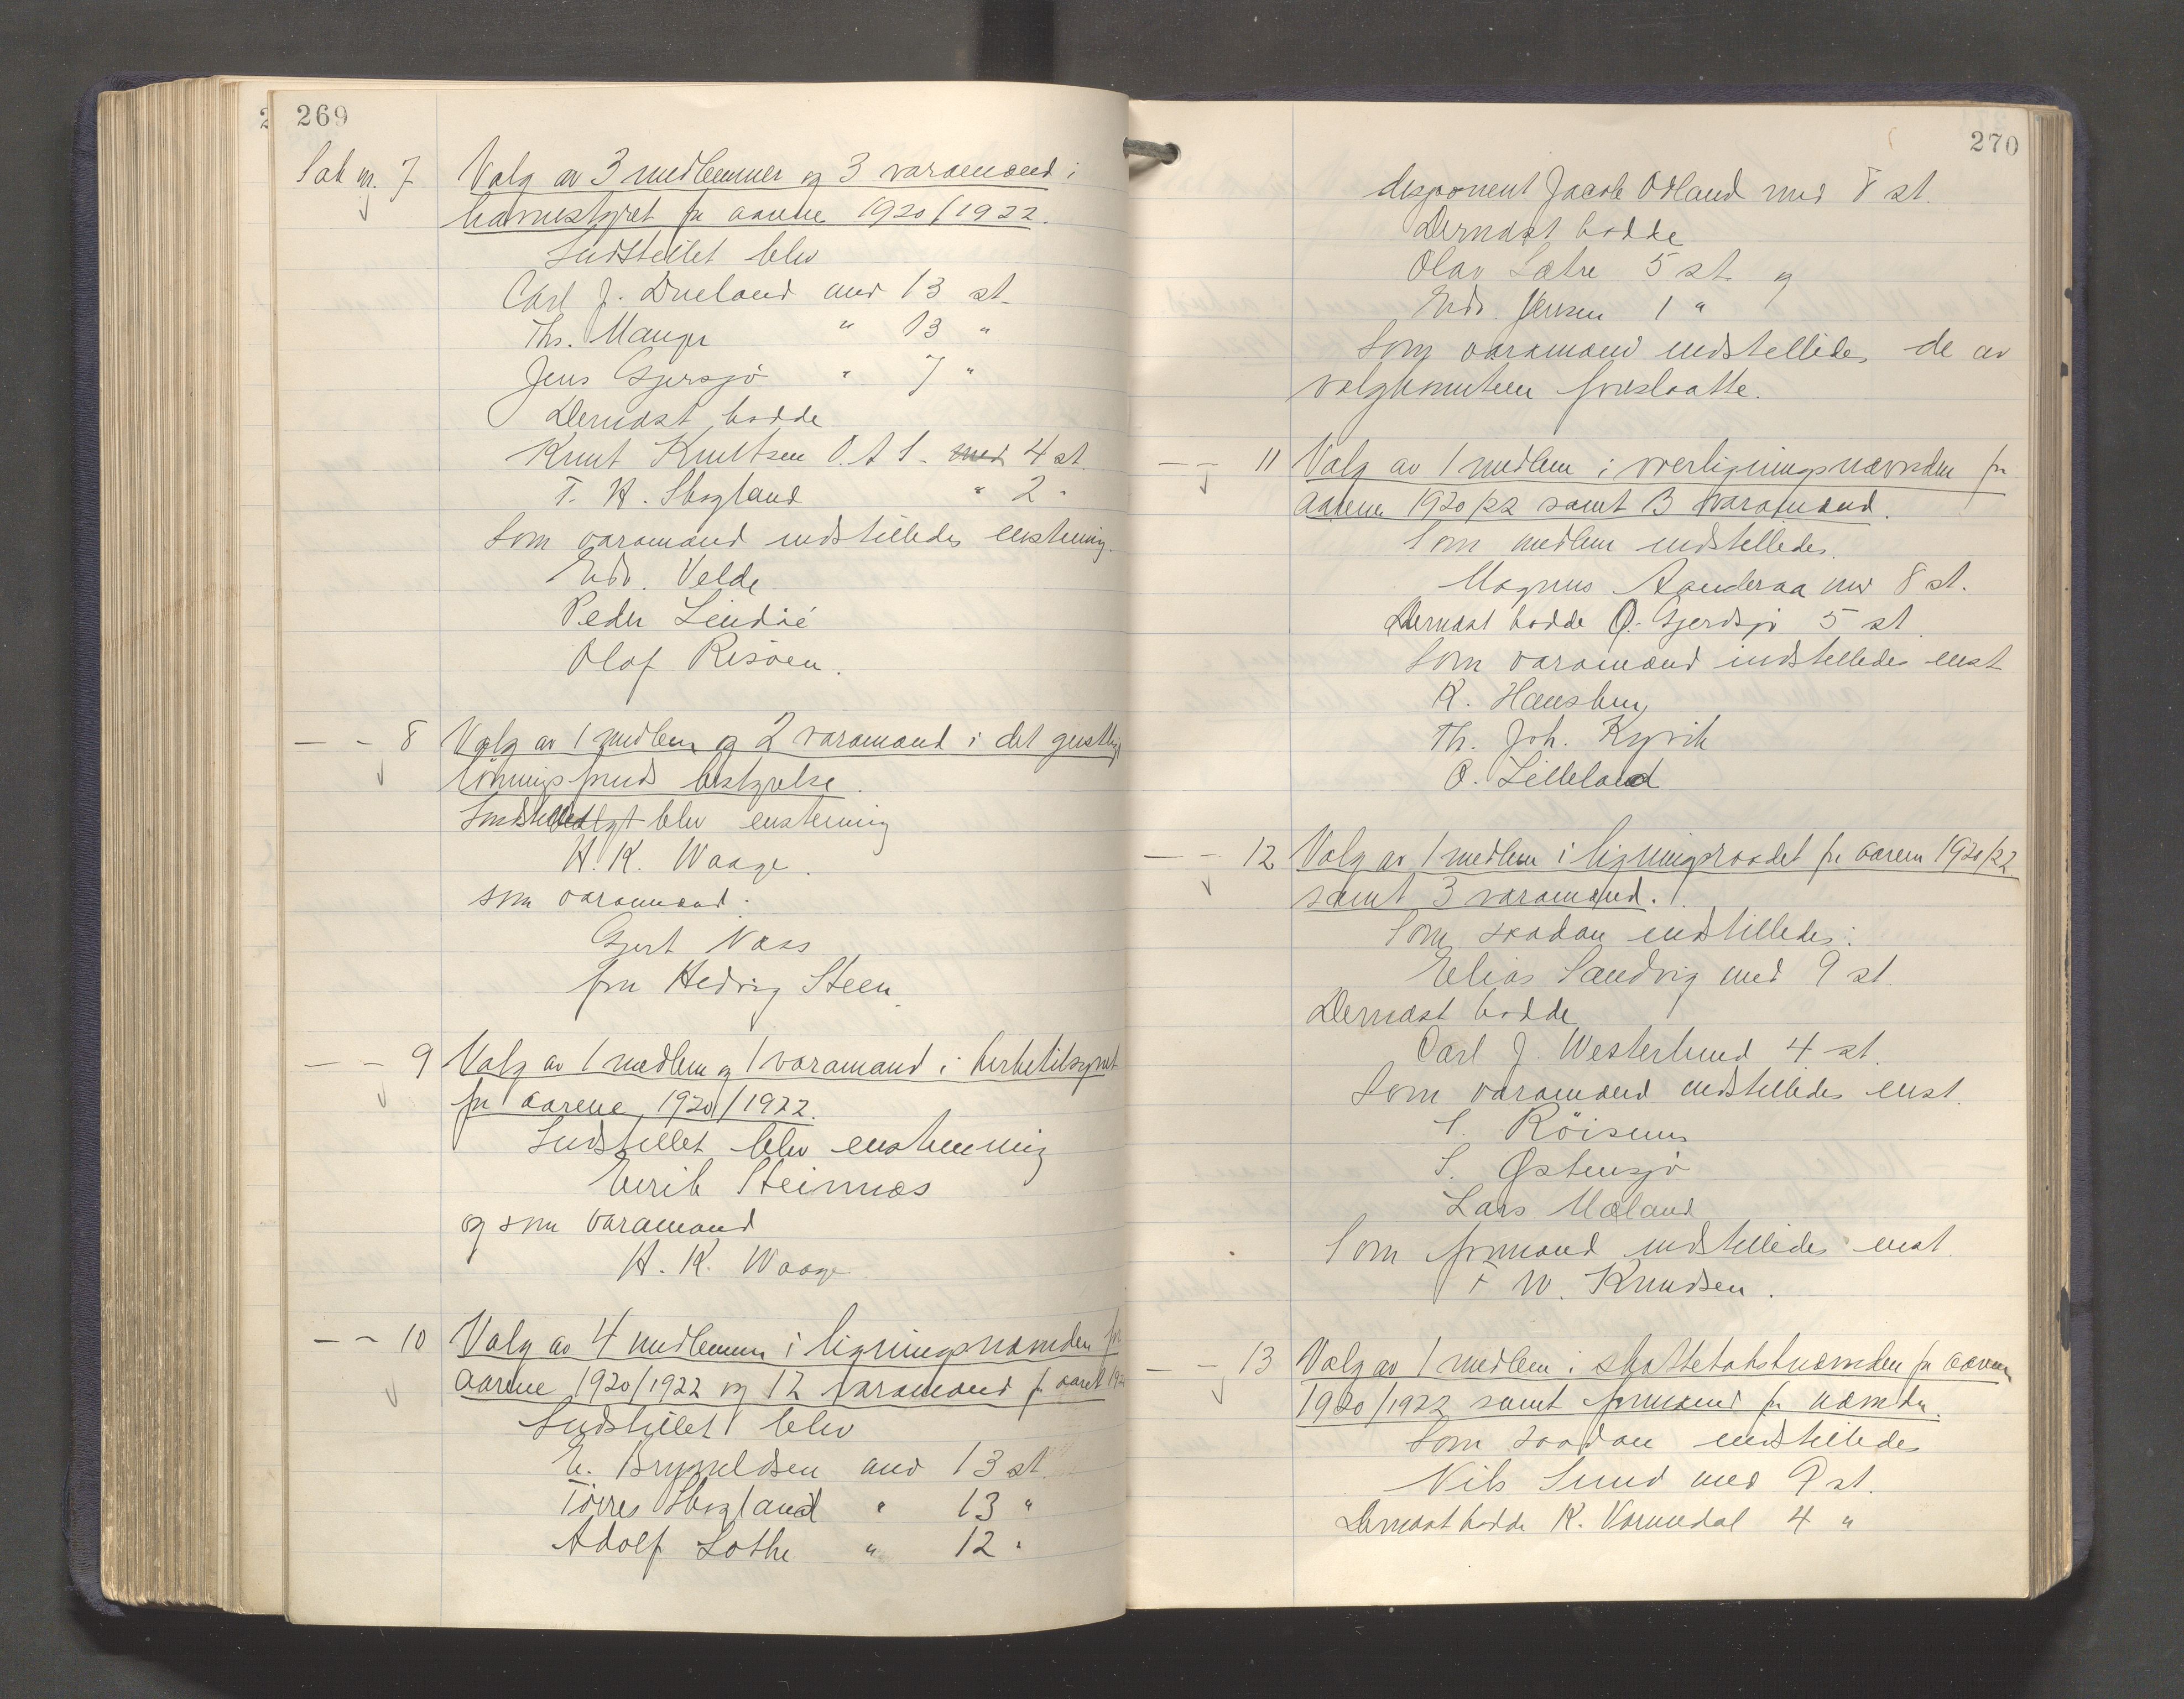 269
Sak nr. 7 Valg av 3 medlemmer og 3 varamænd i
havnestyret for aarene 1920/1922.
Indstillet blev
Carl J. Dueland med 13 st.
Ths. Manger " 13 "
Jens Gjersjø " 7 "
Dernæst hadde
Knut Knutsen O.A.S. med 4 st.
T. H. Skogland " 2 "
Som varamænd indstilledes enstemmig.
Edv. Velde
Peder Lindøe
Olaf Risøen.
— - 8 Valg av 1 medlem og 2 varamænd i det geistlige
lønningsfonds bestyrelse.
Indstillet blev enstemmig
H. K. Waage.
som varamænd:
Gjert Næss
fru Hedvig Steen.
— - 9 Valg av 1 medlem og 1 varamand i kirketilsynet
for aarene 1920/1922.
Indstillet blev enstemmig
Eerik Steinnæs
og som varamand
H. K. Waage.
— - 10 Valg av 4 medlemmer i ligningsnævnden for
aarene 1920/1922 og 12 varamænd for aaret 192
Indstillet blev
E. Brynneldsen med 13 st.
Törres Skogland " 13 "
Adolf Lothe " 12 "
270
disponent Jacob Odland med 8 st.
Dernæst hadde
Olav Sætre 5 st. og
Edv. Jensen 1 "
Som varamænd indstilledes de av
valgkomiteen foreslaatte.
— - 11 Valg av 1 medlem i overligningsnævnden for
aarene 1920/22 samt 3 varamænd.
Som medlem indstilledes.
Magnus Aanderaa med 8 st.
Dernæst hadde O. Gjerdsjø 5 st.
Som varamænd indstilledes enst
K. Hausberg
Th. Joh. Kyvik
O. Lilleland
— - 12 Valg av 1 medlem i ligningsraadet for aarene 1920/22
samt 3 varamænd.
Som saadan indstilledes:
Elias Sandvig med 9 st.
Dernæst hadde
Carl J. Westerlund 4 st.
Som varamænd indstilledes enst.
S. Röisum
S. Østensjø
Lars Mæland
Som formand indstilledes enst.
F W. Knudsen.
— - 13 Valg av 1 medlem i skattetakstnævnden for aarene
1920/1922 samt formand for nævnden.
Som saadan indstilledes
Nils Sund med 9 st.
Dernæst hadde K. Vormedal 4 "